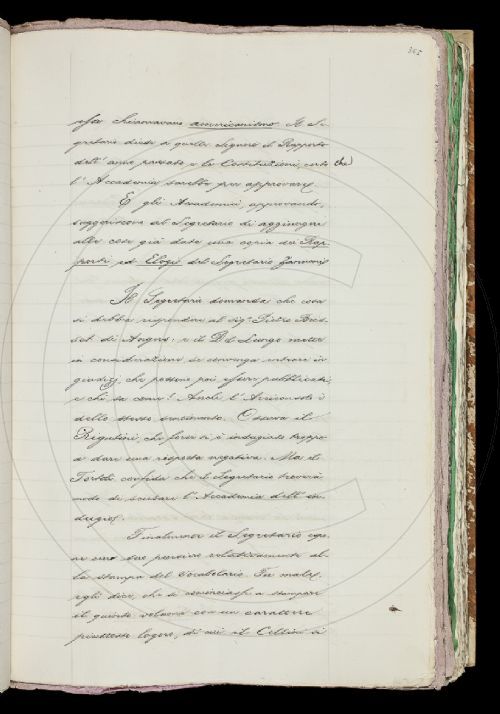 365
essa chiamavano americanismo. Il Se-
gretario diede a quella Signora il Rapporto
dell'anno passato e le Costituzioni, certo che
l'Accademia sarebbe per approvare.
E gli Accademici, approvando,
suggeriscono al Segretario di aggiungere
alle cose già date una copia dei Rap-
porti ed Elogi del Segretario Zannoni
Il Segretario domanda che cosa
si debba rispondere al Sig. Pietro
di e il Del Lungo mette
in considerazione se convenga entrare in
giudizj, che possono poi esser pubblicati,
e chi sa come! Anche l'Arciconsolo è
dello stesso sentimento. Osserva il
Rigutini, che forse si è indugiato troppo
a dare una risposta negativa. Ma il
Tortoli confida che il Segretario troverà
modo di scusare l'Accademia dell'in-
dugio.
Finalmente il Segretario espo-
ne un suo pensiero relativamente al-
la stampa del Vocabolario. Fu male,
egli dice, che si cominciasse a stampare
il quinto volume con un carattere
piuttosto logoro, di cui il Cellini si